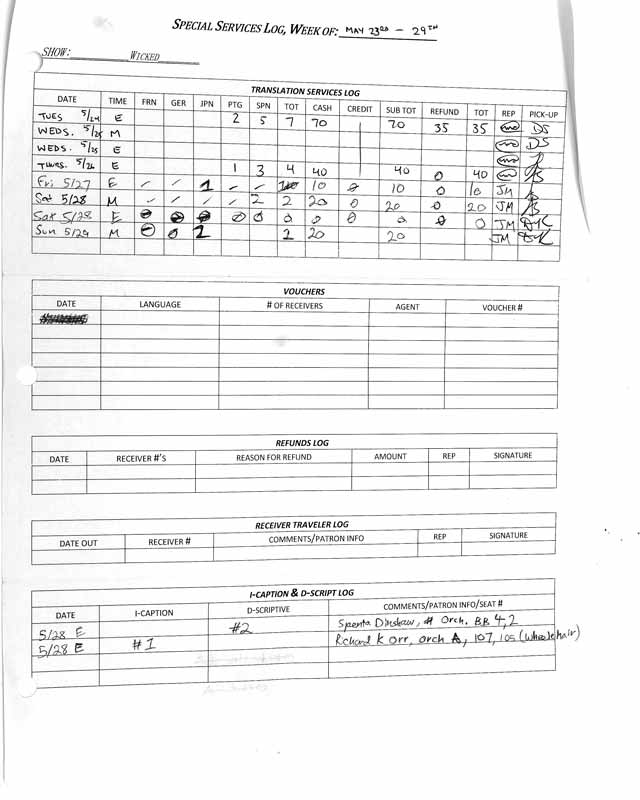 SPECIAL SERVICES LOG, WEEK OF: MAY 23RD - 29TH
SHOW: WICKED
TRANSLATION SERVICES LOG
DATE TIME FRN GER JPN PTG SPN TOT CASH CREDIT SUB TOT REFUND TOT REP PICK-UP
TUES 5/24 E 2 5 7 70 70 35 35 DS
WEDS. 5/25 M DS
WEDS. 5/25 E
THURS. 5/26 E 1 3 4 40 40 0 40
Fri 5/27 E - - 1 - - 10 0 10 0 10 JM
Sat 5/28 M - - - - 2 2 20 0 20 0 20 JM
Sat 5/28 E 0 0 0 0 0 0 0 0 0 0 0 JM DK
Sun 5/29 M 0 0 2 2 20 20 JM DK
VOUCHERS
DATE LANGUAGE # OF RECEIVERS AGENT VOUCHER #
REFUNDS LOG
DATE RECEIVER #'S REASON FOR REFUND AMOUNT REP SIGNATURE
RECEIVER TRAVELER LOG
DATE OUT RECEIVER # COMMENTS/PATRON INFO REP SIGNATURE
I-CAPTION & D-SCRIPT LOG
DATE I-CAPTION D-SCRIPTIVE COMMENTS/PATRON INFO/SEAT #
5/28 E #2 Spenta Dinshaw, Orch. BB 4, 2
5/28 E #1 Richard K Orr, orch A, 107, 105 (wheelchair)